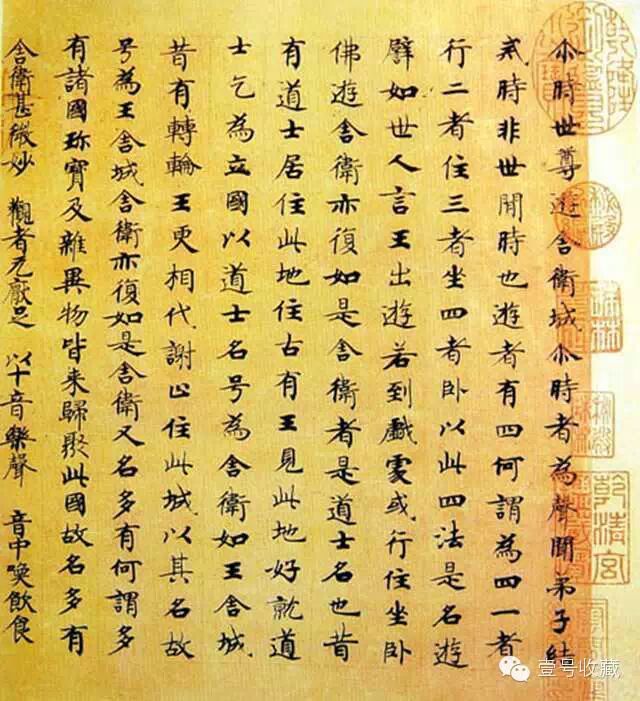 尒時世尊遊舍衛城尒時者為聲聞弟子結
戒時非世間時也遊者有四何謂為四一者
行二者住三者坐四者卧以此四法是名遊
譬如世人言王出遊若到戲處或行住坐卧
佛遊舍衛亦復如是舍衛者是道士名也昔
有道士居住此地住古有王見此地好就道
士乞為立國以道士名号為舍衛如王舍城
昔有轉輪王更相代謝止住此城以其名故
号為王舍城舍衛亦復如是舍衛又名多有何謂多
有諸國珎寶及雜異物皆来歸聚此國故名多有
舍衛甚微妙 觀者无厭足 以十音樂聲 音中喚飲食
乾清宮
壹号收藏